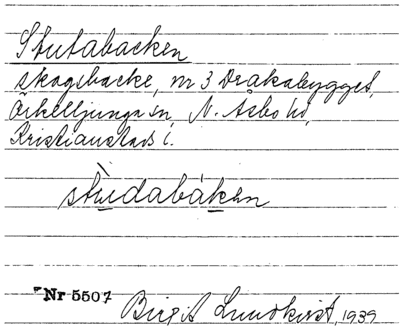 Stutabacken
skogsbacke, nr 3 Drakabygget,
Örkelljunga sn, N. Åsbo hd,
Kristianstads l.
stùdabáken
Nr 5507
Birgit Lundkvist, 1939